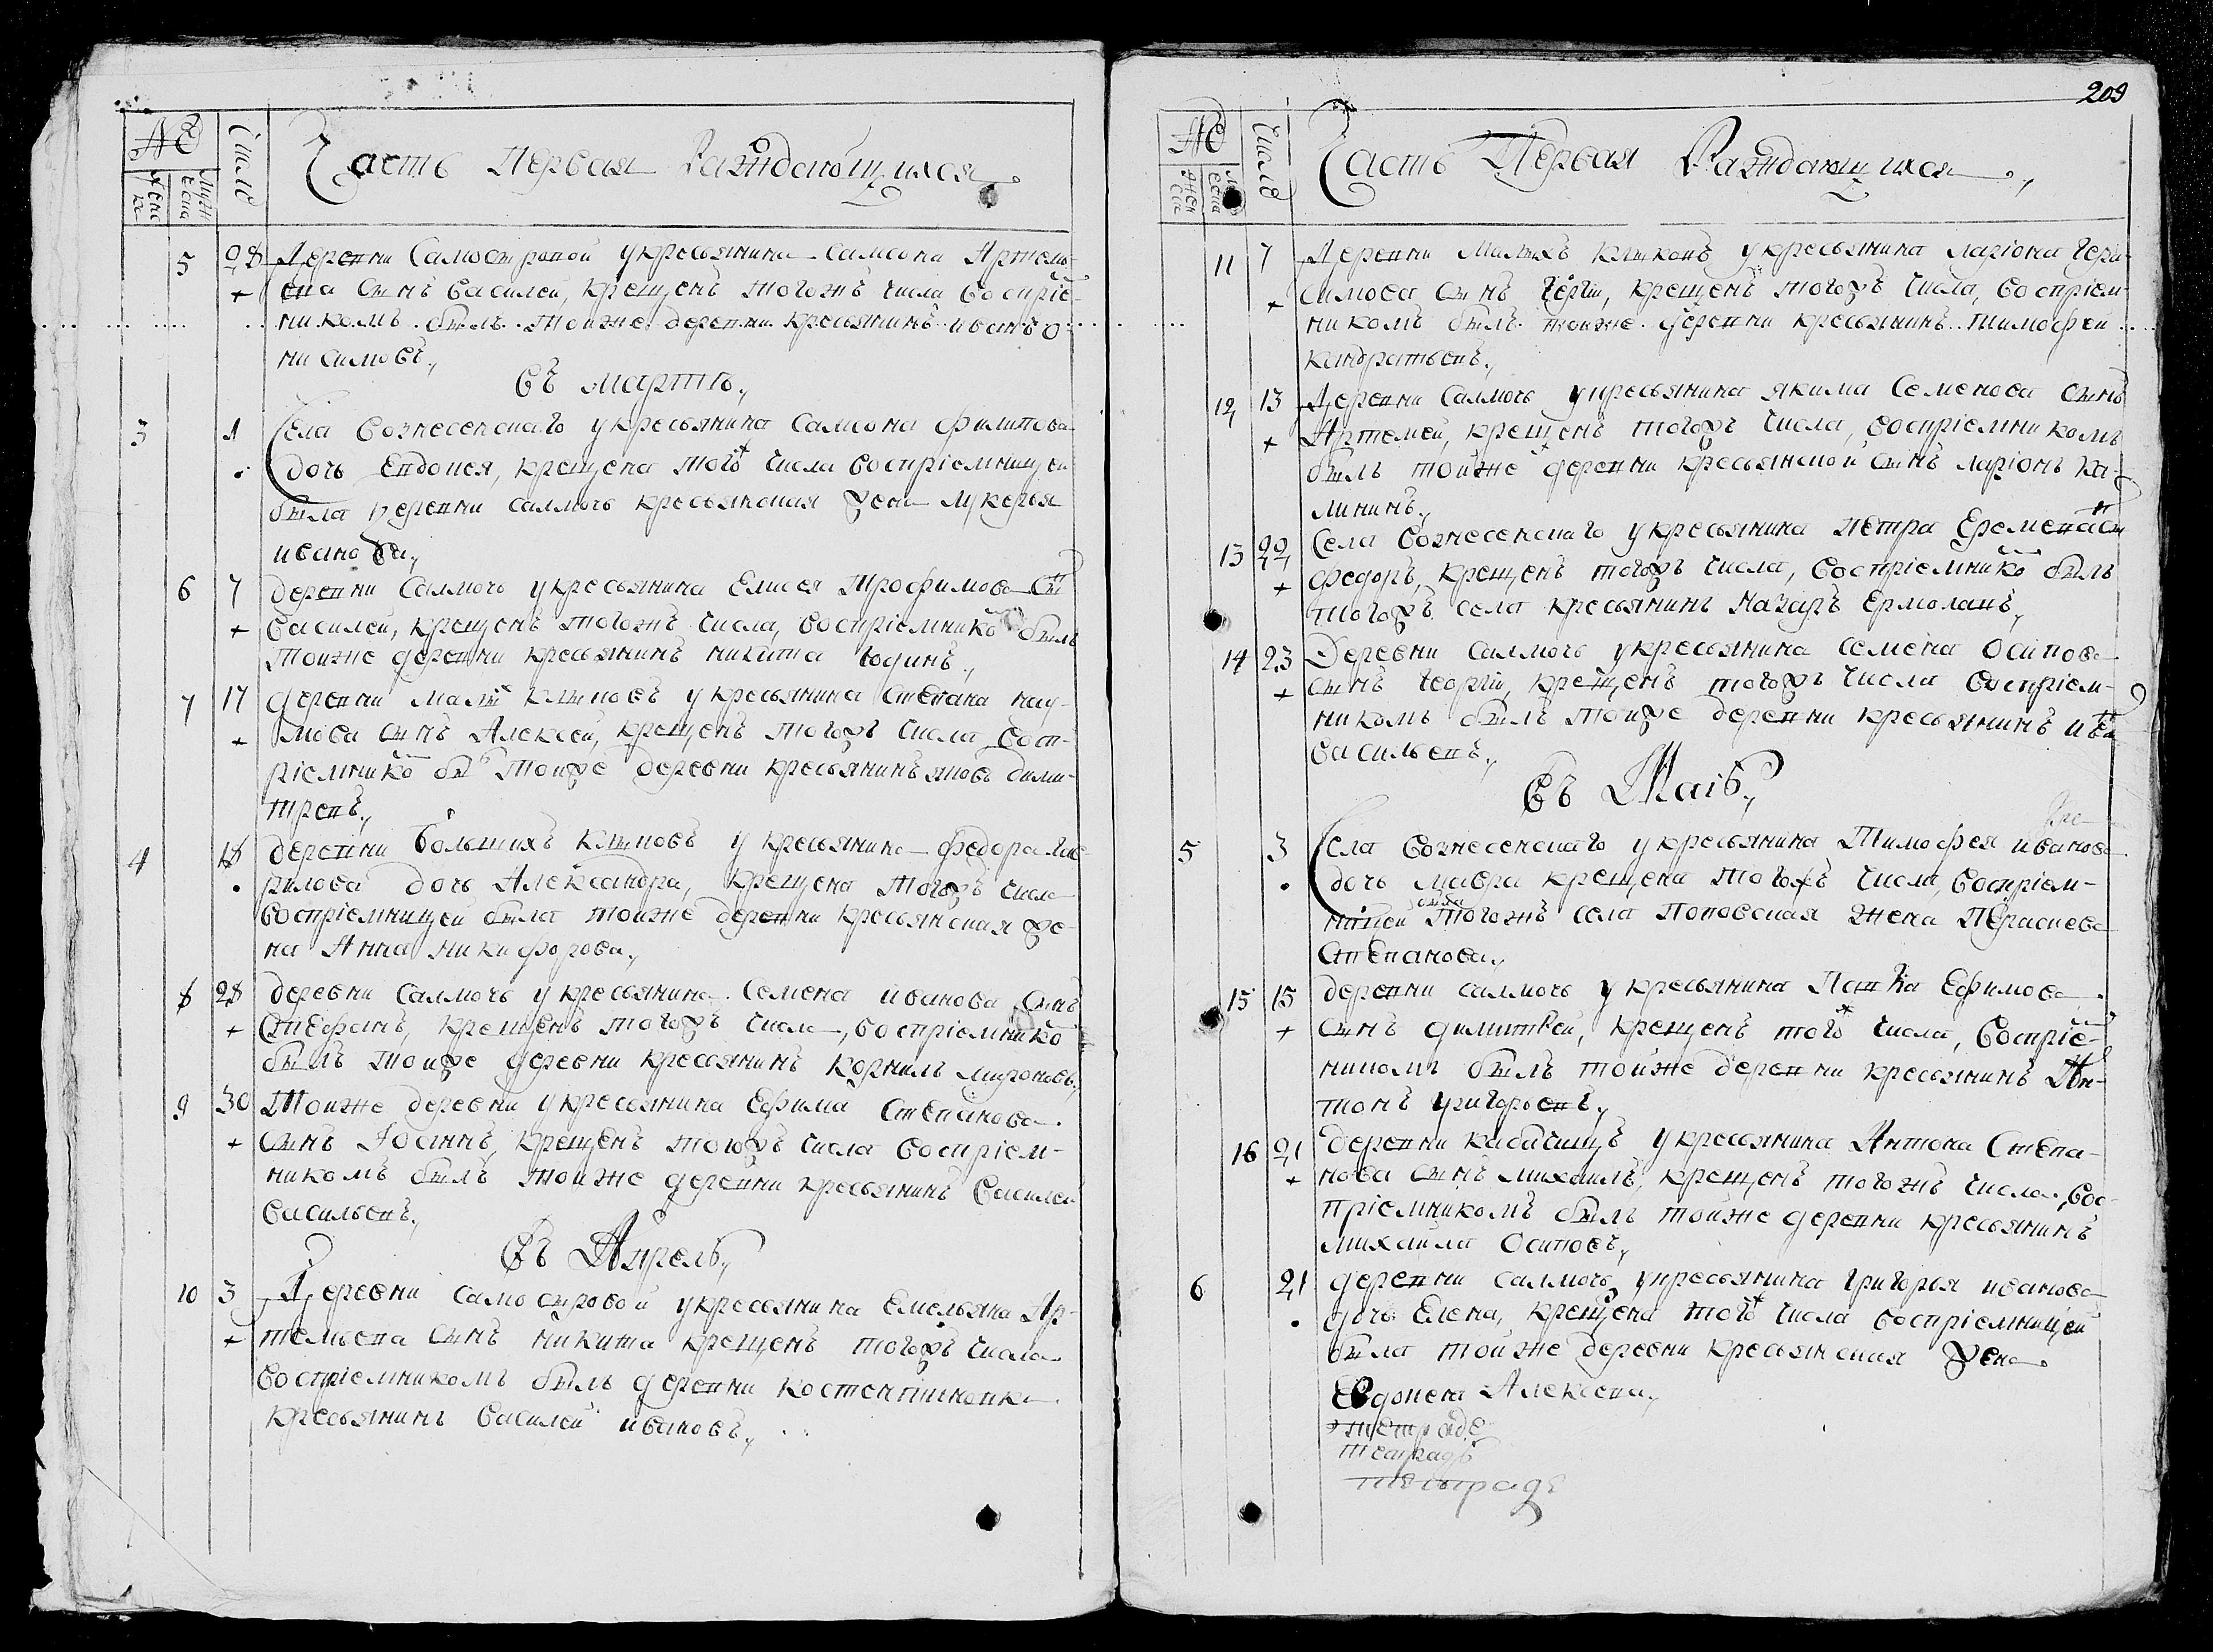 № Число Часть Первая Раждающихся
Женска Мужеска
5 28 Деревни Самоструновой у крестьянина Самсона Артемь-
+ ева сынъ Василей, крещенъ тогожъ числа воспріем-
никомъ былъ тойже деревни крестьянинъ иванъ о-
нисимовъ,
Въ мартѣ,
3 1 Села Вознесенскаго у крестьянина Самсона филипова
дочь Евдокея, крещена того ж числа воспріемницей
была деревни саллмочь крестьянская жена лукерья
иванова,
6 7 деревни Саллмочь у крестьянина Елисея Трофимова сынъ
+ Василей, крещенъ тогожъ числа, воспріемником былъ
тойже деревни крестьянинъ никита юдинъ,
7 17 деревни малых клыковъ у крестьянина Степана нау-
+ мова сынъ Алексей, крещенъ тогожъ числа восп-
ріемником былъ тойже деревни крестьянинъ яковъ дими-
тревъ,
4 18 деревни большихъ клыковъ у крестьянина федора гав-
рилова дочь Александра, крещена тогожъ числа
воспріемницей была тойже деревни крестьянская же-
на Анна никифорова,
8 28 деревни саллмочь у крестьянина Семена иванова сынъ
+ Стефанъ, крещенъ тогожъ числа, воспріемником
былъ тойже деревни крестьянинъ корнилъ мироновъ,
9 30 Тойже деревни у крестьянина Ефима Степанова
+ сынъ Иоаннъ, крещенъ тогожъ числа воспріем-
никомъ былъ тойже деревни крестьянинъ Василей
Васильевъ,
Въ Апрелѣ,
10 3 Деревни самостровой у крестьянина Емельяна Ар-
+ темьева сынъ никита крещенъ тогожъ числа
воспріемникомъ былъ деревни костентиновки
крестьянинъ Василей ивановъ,
209
№ Число Часть Первая Раждающихся,
11 7 Деревни Малыхъ клыковъ у крестьянина ларіона гера-
+ симова сынъ гергіи, крещенъ тогожъ числа, воспріем-
никомъ былъ тойже деревни крестьянинъ тимофей
кандратьевъ,
12 13 Деревни Саллмочь у крестьянина якима Семенова сынъ
+ Артемей, крещенъ тогожъ числа, воспріемникомъ
былъ тойже деревни крестьянской сынъ ларіонъ ка-
лининъ,
13 22 Села Вознесенскаго у крестьянина петра Еремеева сынъ
+ федоръ, крещенъ тогожъ числа, воспріемником былъ
тогожъ села крестьянинъ назаръ ермолаевъ,
14 23 Деревни Саллмочь у крестьянина семена осипова
+ сынъ георгіи, крещенъ тогожъ числа воспріем-
никомъ былъ тойже деревни крестьянинъ иванъ
васильевъ,
Въ Маіѣ,
5 3 Села Вознесенскаго у крестьянина Тимофея иванова
дочь мавра крещена тогожъ числа, воспріем-
ницей была тогожъ села поповская жена Перасцева
Степанова,
15 15 деревни саллмочь у крестьянина Ефимова
+ сынъ димитрей, крещенъ того ж числа, воспріем-
никомъ былъ тойже деревни крестьянинъ Ан-
тонъ григорьевъ,
16 21 деревни кабачищъ у крестьянина Антона Степа-
+ нова сынъ михаилъ, крещенъ тогожъ числа, вос-
пріемникомъ былъ тойже деревни крестьянинъ
михаила осиповъ,
6 21 деревни саллмочь у крестьянина григорья иванова
дочь Елена, крещена того ж числа воспріемницей
была тойже деревни крестьянская жена
Евдокея Алексеева,
тетраде
тетрадь
тетраде